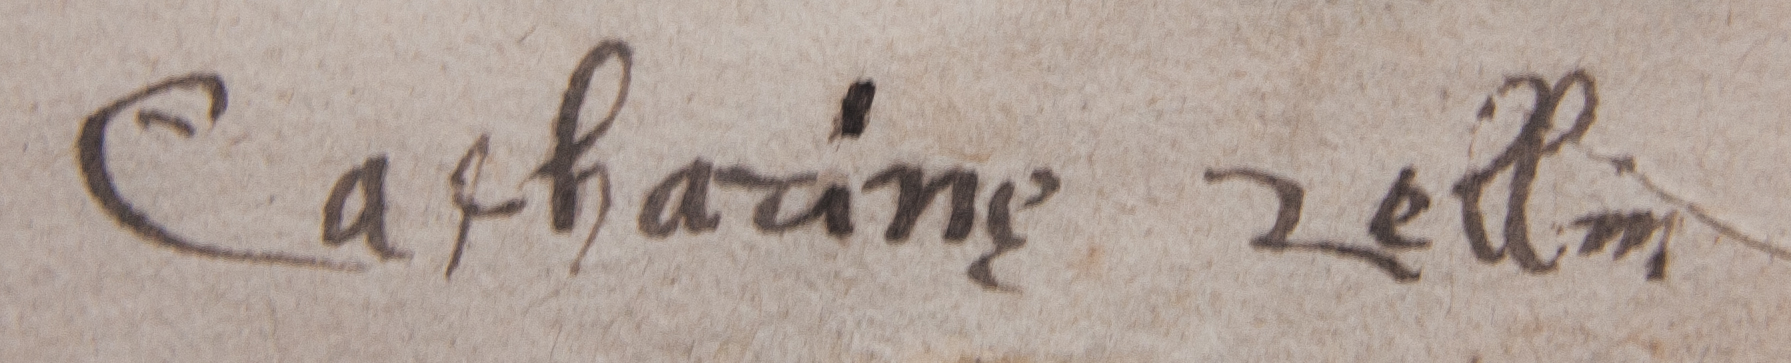 Catharinę Zellin